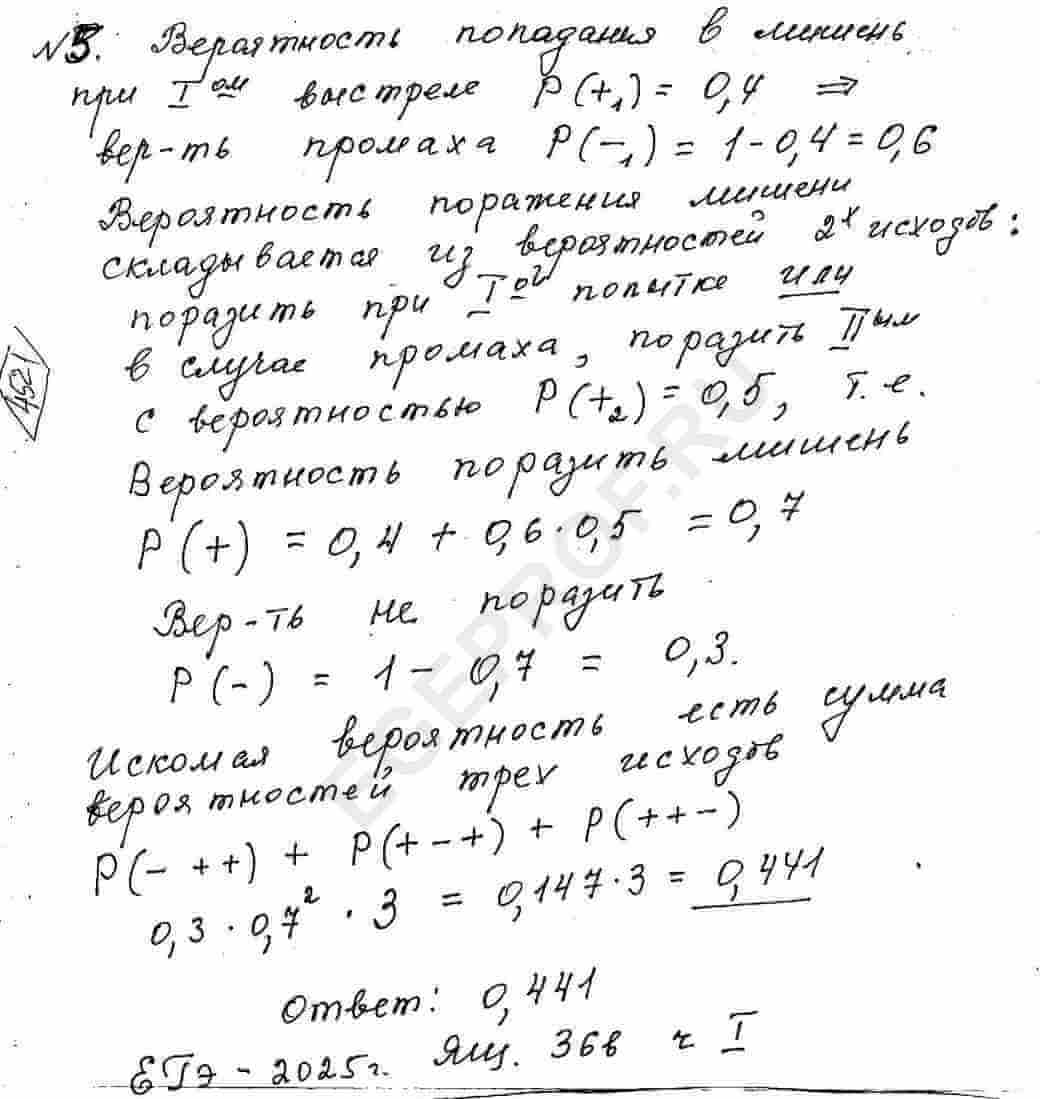 №5. Вероятность попадания в мишень
при I ом выстреле P(+₁) = 0,4 ⇒
вер-ть промаха P(-₁) = 1-0,4 = 0,6
Вероятность поражения мишени
складывается из вероятностей 2х исходов:
поразить при I ой попытке или
в случае промаха, поразить II ым
с вероятностью P(+₂) = 0,5, т.е.
Вероятность поразить мишень
P(+) = 0,4 + 0,6·0,5 = 0,7
Вер-ть не поразить
P(-) = 1 - 0,7 = 0,3.
Искомая вероятность есть сумма
вероятностей трех исходов
P(-++) + P(+-+) + P(++-)
0,3 · 0,7² · 3 = 0,147·3 = 0,441
Ответ: 0,441
ЕГЭ - 2025г. Ящ. 36в ч I
4521
EGEPROF.RU